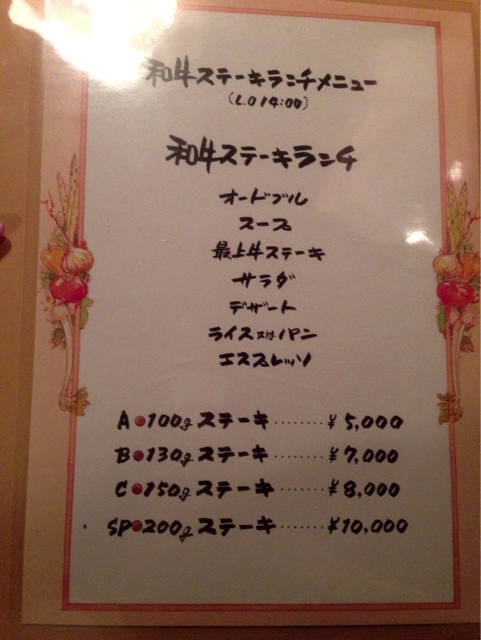 和牛ステーキランチメニュー
(L.O 14:00)
和牛ステーキランチ
オードブル
スープ
最上牛ステーキ
サラダ
デザート
ライス又はパン
エスプレッソ
A●100gステーキ········¥5,000
B●130gステーキ······¥7,000
C●150gステーキ······¥8,000
SP●200gステーキ······¥10,000